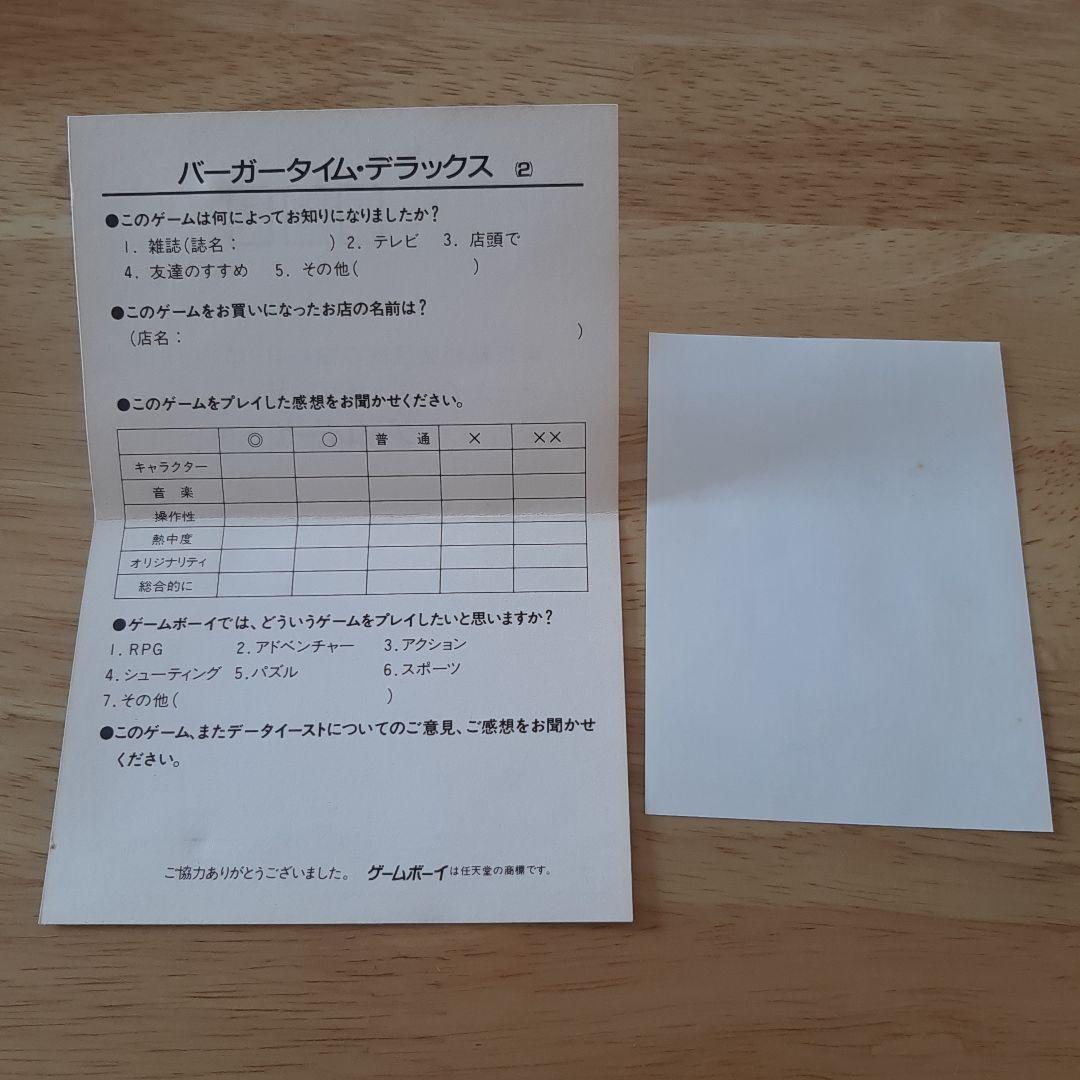 バーガータイム・デラックス (2)
●このゲームは何によってお知りになりましたか?
1. 雑誌(誌名: ) 2. テレビ 3. 店頭で
4. 友達のすすめ 5. その他( )
●このゲームをお買いになったお店の名前は?
(店名: )
●このゲームをプレイした感想をお聞かせください。
◎ ○ 普 通 × ××
キャラクター
音 楽
操作性
熱中度
オリジナリティ
総合的に
●ゲームボーイでは、どういうゲームをプレイしたいと思いますか?
1. RPG 2. アドベンチャー 3. アクション
4. シューティング 5. パズル 6. スポーツ
7. その他( )
●このゲーム、またデータイーストについてのご意見、ご感想をお聞かせ
ください。
ご協力ありがとうございました。 ゲームボーイは任天堂の商標です。